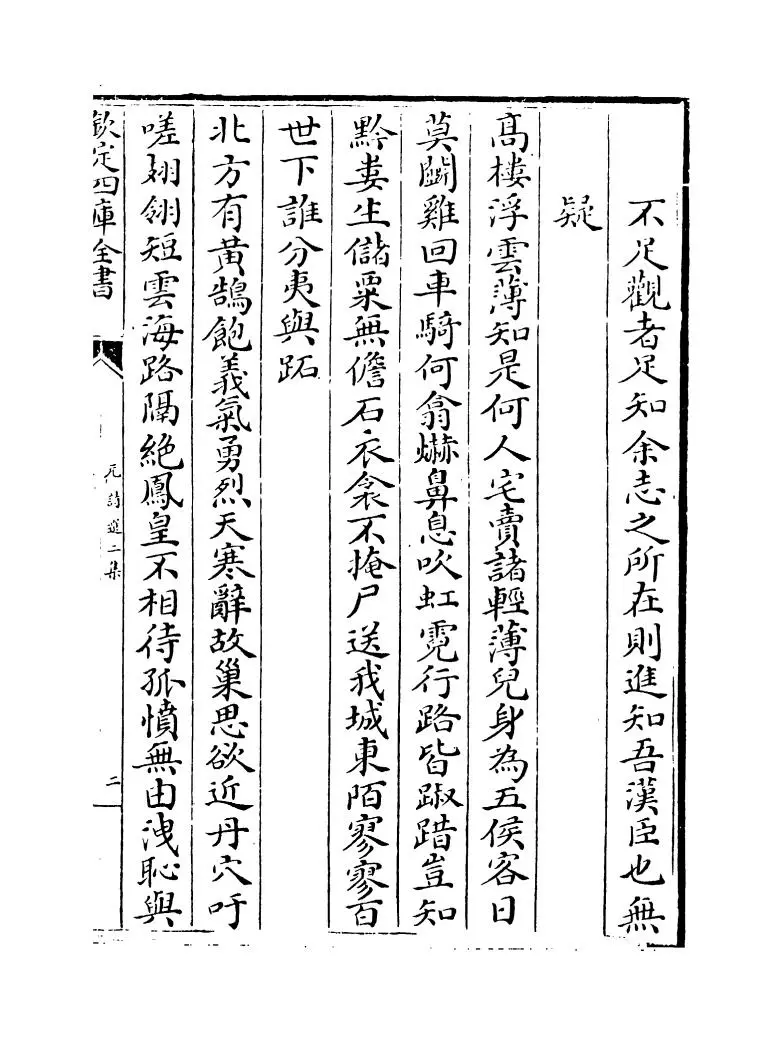 不足觀者足知余志之所在則進知吾漢臣也無
疑
高樓浮雲薄知是何人宅賣諸輕薄兒身為五侯客日
莫鬭雞回車騎何翕爀鼻息吹虹霓行路皆踧踖豈知
黔婁生儲粟無儋石衣衾不掩尸送我城東陌寥寥百
世下誰分夷與跖
北方有黃鵠飽義氣勇烈天寒辭故巢思欲近丹穴吁
嗟翅翎短雲海路隔絶鳳皇不相待孤憤無由洩恥與
欽定四庫全書
元詩選二集
二